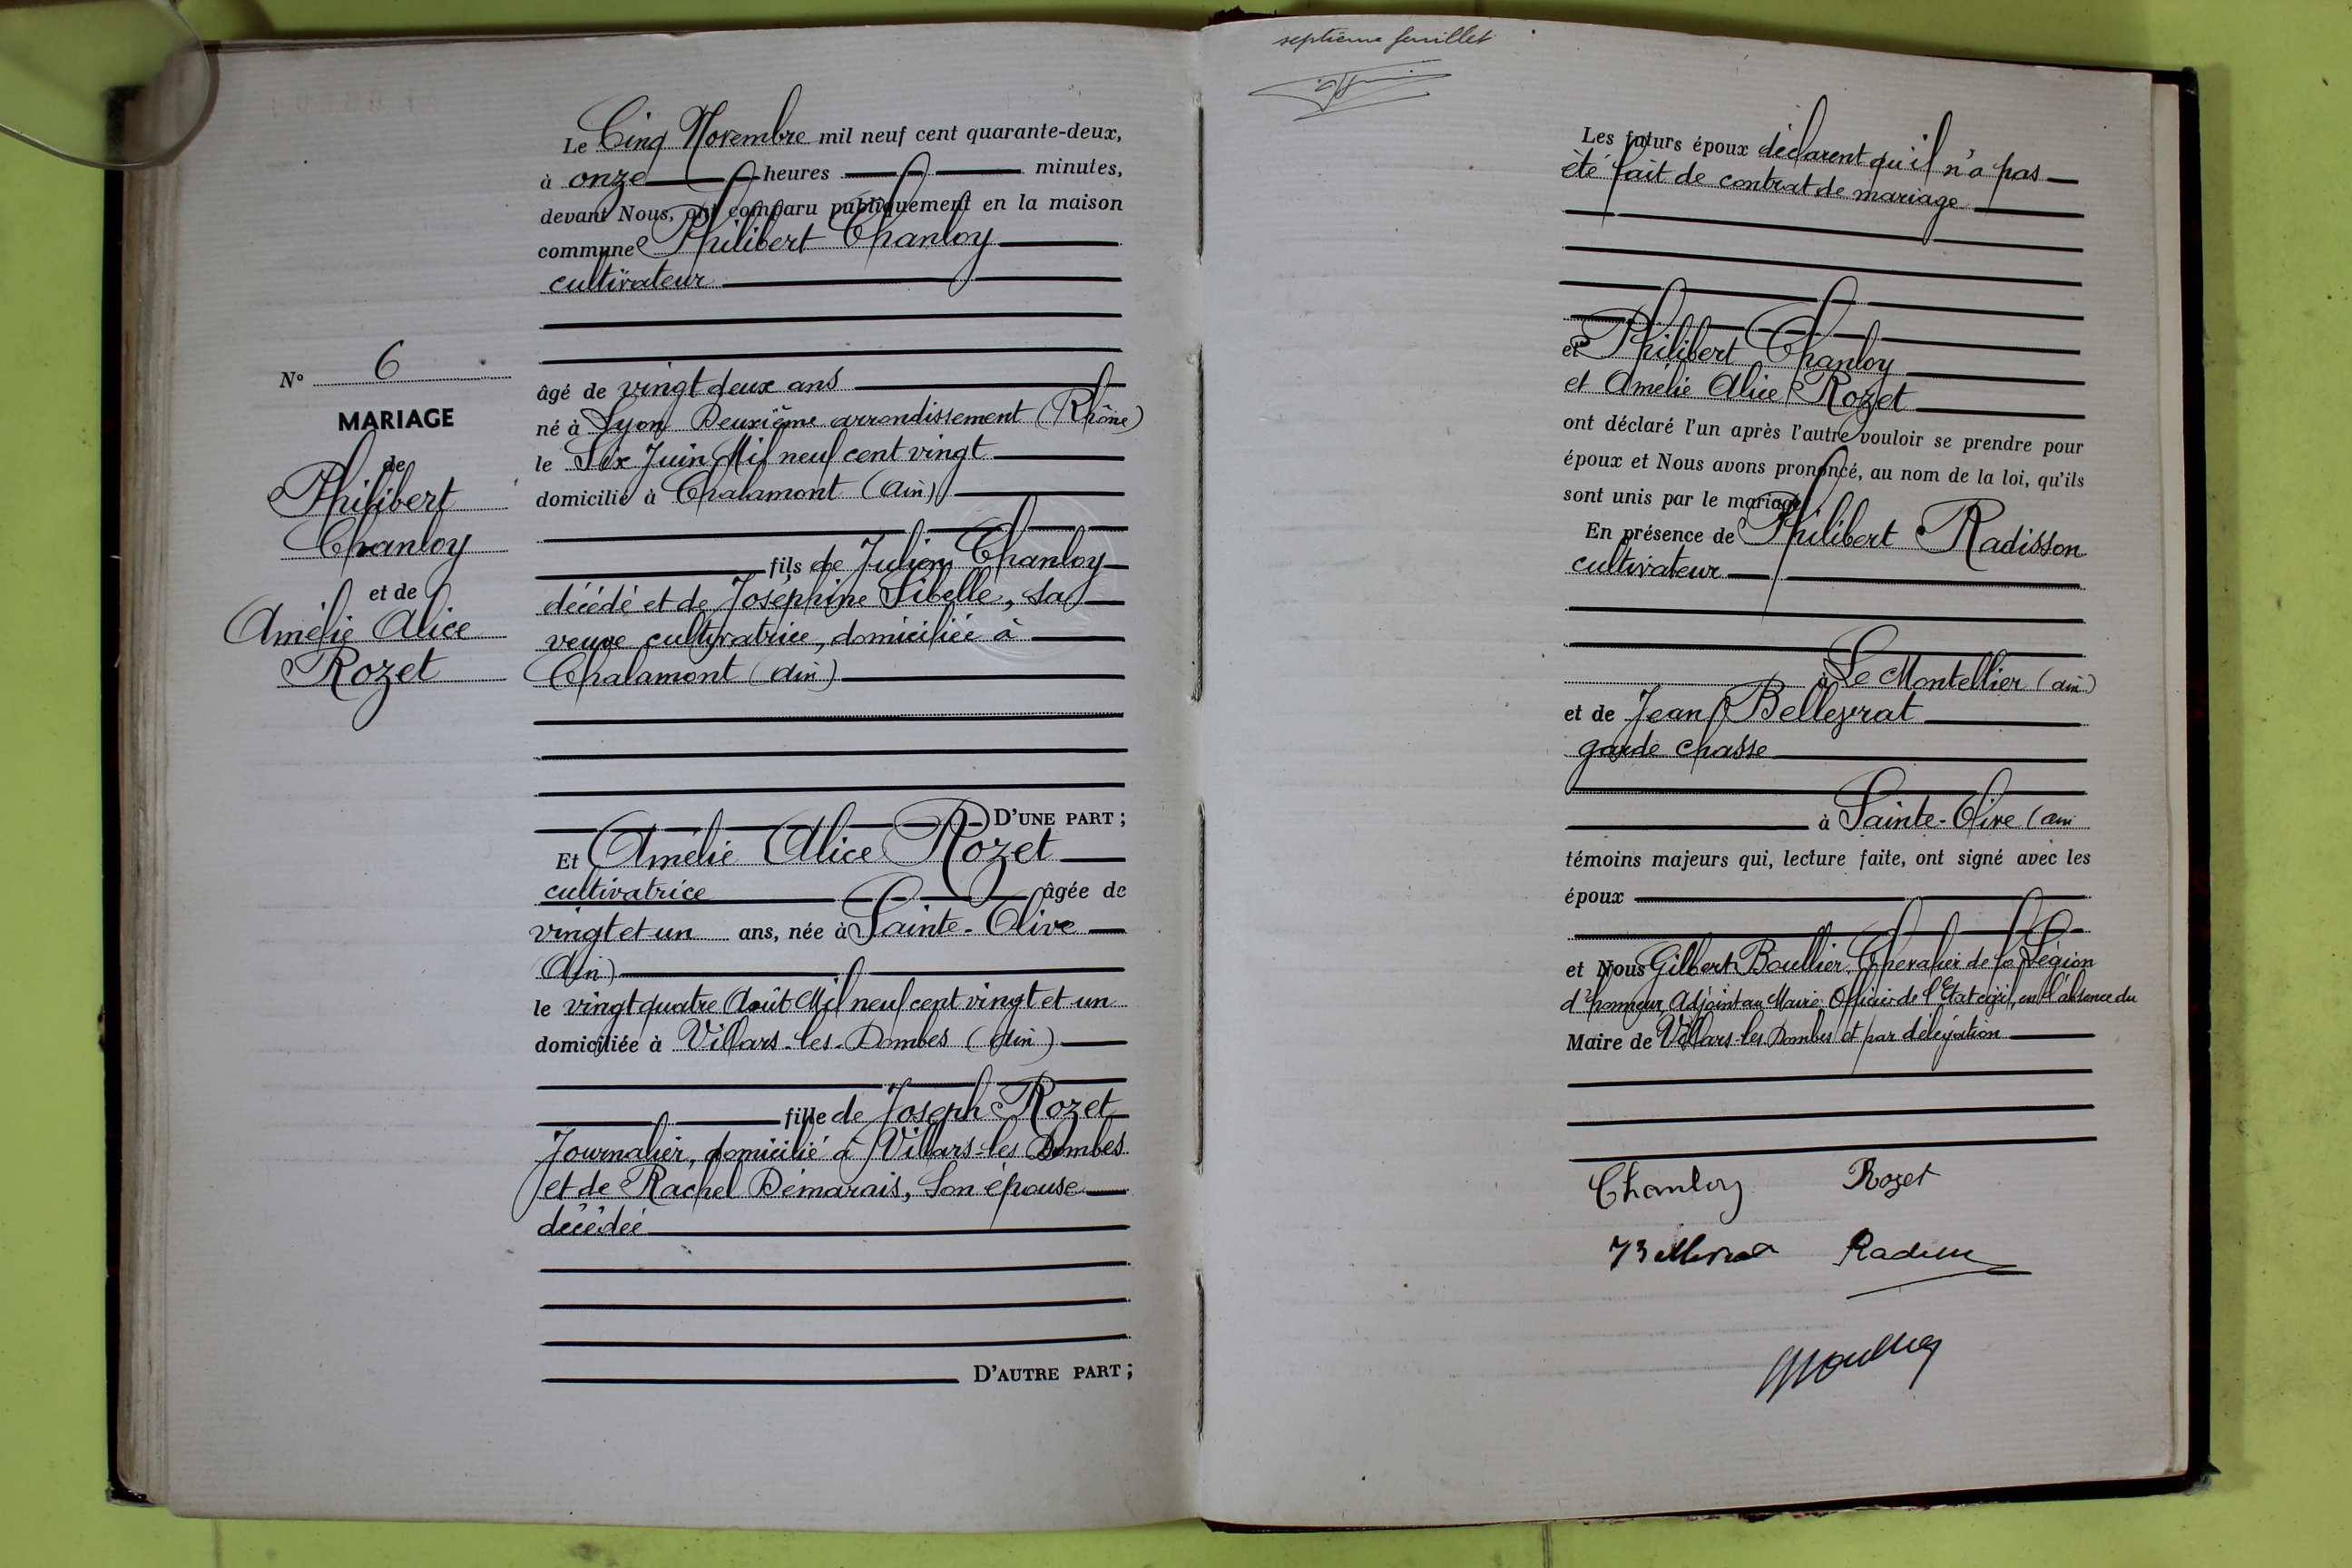 N° 6
MARIAGE
de
Philibert
Chanloy
et de
Amélie Alice
Rozet
Le Cinq Novembre mil neuf cent quarante-deux,
à onze heures minutes,
devant Nous, ont comparu publiquement en la maison
commune Philibert Chanloy
cultivateur
âgé de vingt deux ans
né à Lyon Deuxième arrondissement (Rhône)
le Six Juin Mil neuf cent vingt
domicilié à Chalamont (Ain)
fils de Julien Chanloy
décédé et de Joséphine Sibelle, sa
veuve cultivatrice, domiciliée à
Chalamont (Ain)
D'UNE PART ;
Et Amélie Alice Rozet
cultivatrice âgée de
vingt et un ans, née à Sainte-Olive
Ain)
le vingt quatre Août Mil neuf cent vingt et un
domiciliée à Villars-les-Dombes (Ain)
fille de Joseph Rozet
Journalier, domicilié à Villars-les Dombes
et de Rachel Démarais, son épouse
décédée
D'AUTRE PART ;
septième feuillet
Les futurs époux déclarent qu'il n'a pas
été fait de contrat de mariage
et Philibert Chanloy
et Amélie Alice Rozet
ont déclaré l'un après l'autre vouloir se prendre pour
époux et Nous avons prononcé, au nom de la loi, qu'ils
sont unis par le mariage
En présence de Philibert Radisson
cultivateur
à Le Montellier (Ain)
et de Jean Belleyrat
garde chasse
à Sainte-Olive (Ain
témoins majeurs qui, lecture faite, ont signé avec les
époux
et Nous Gilbert Boullier, Chevalier de la Légion
d'honneur, Adjoint au Maire, Officier de l'Etat civil, en l'absence du
Maire de Villars-les Dombes et par délégation
Chanloy Rozet